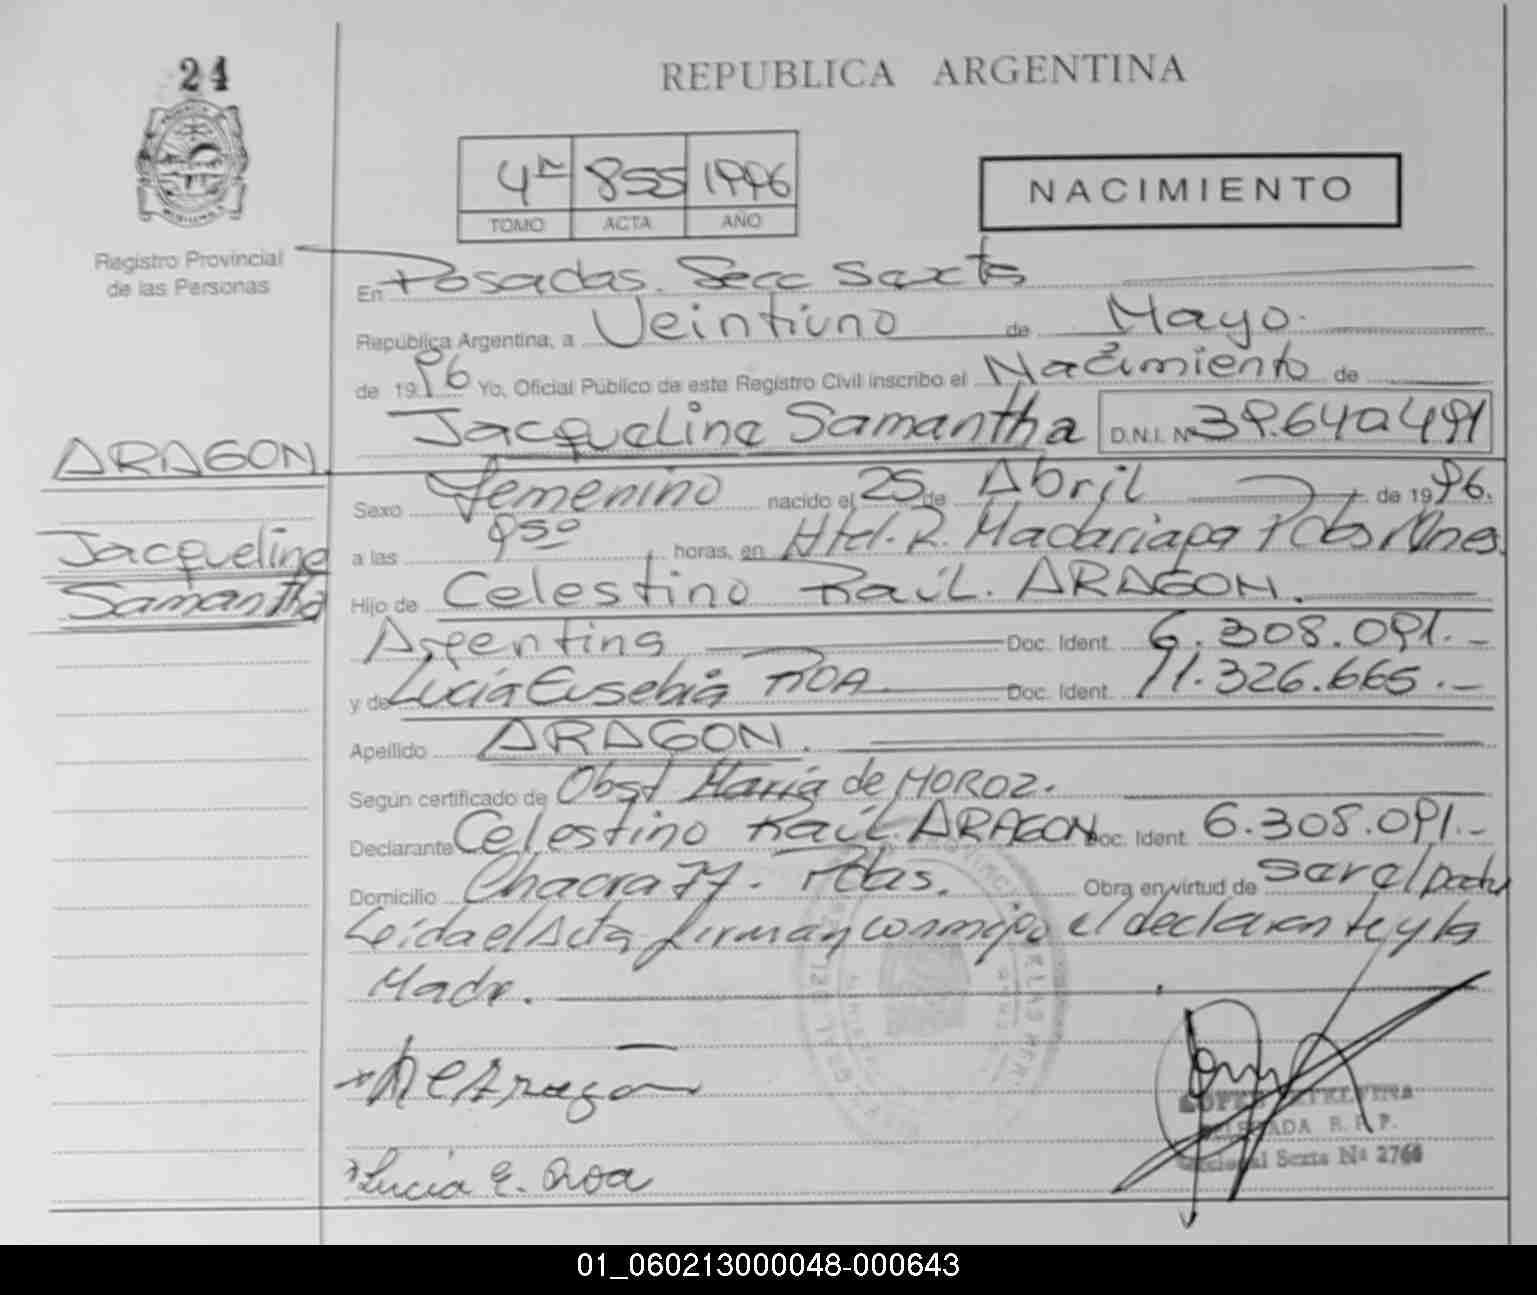 24
REPUBLICA ARGENTINA
4º 855 1996
TOMO ACTA AÑO
NACIMIENTO
Registro Provincial
de las Personas
En Posadas. Secc Sexta
República Argentina, a Veintiuno de Mayo.
de 1996 Yo, Oficial Público de este Registro Civil inscribo el Nacimiento de
Jacqueline Samantha D.N.I. Nº 39.640.491
ARAGON
Jacqueline
Samantha
Sexo Femenino nacido el 25 de Abril de 1996.
a las 950 horas, en Htal. R. Madariaga Pdas Mnes.
Hijo de Celestino Raúl. ARAGON.
Argentina Doc. Ident. 6.308.091.-
y de Lucía Eusebia ROA Doc. Ident. 11.326.665.-
Apellido ARAGON.
Según certificado de Obst María de MOROZ.
Declarante Celestino Raúl. ARAGON Doc. Ident. 6.308.091.-
Domicilio Chacra 77. Pdas. Obra en virtud de ser el padre
Leida el Acta firman conmigo el declarante y la
Madre.
Lucia E. Roa
R. P. P.
Seccional Sexta Nº 2766
01_060213000048-000643